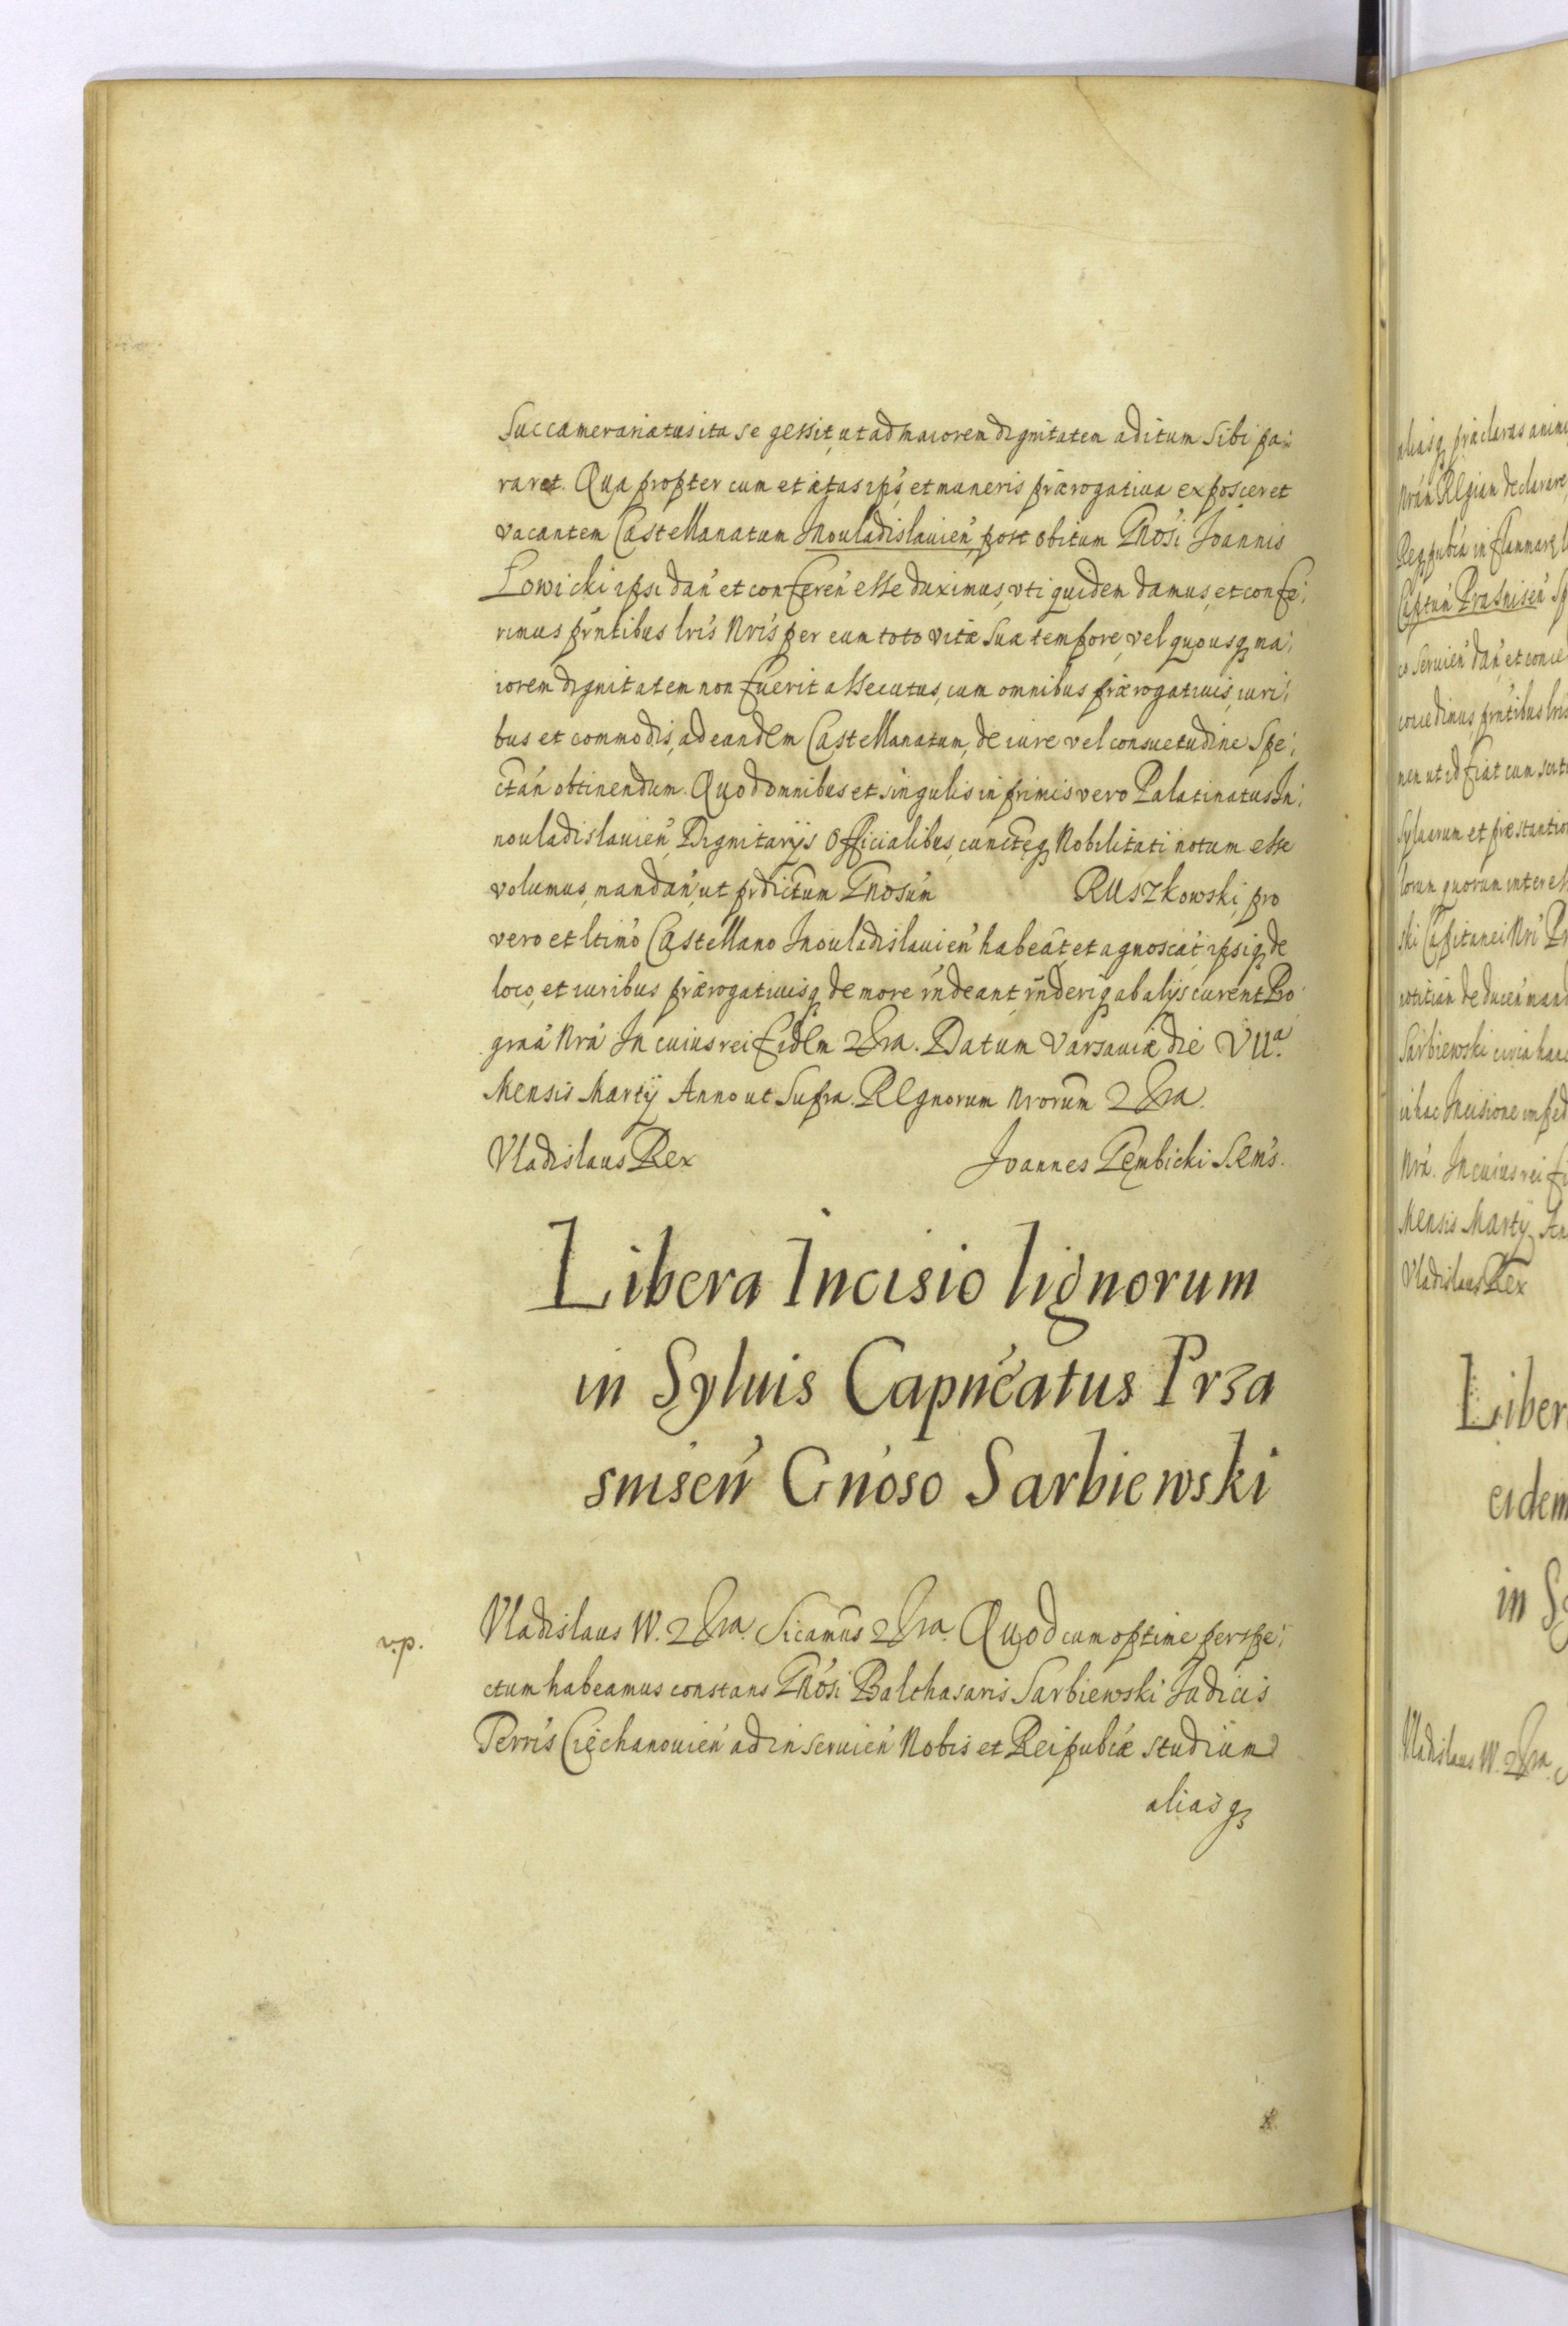 Succamerariatus ita se gessit, ut ad maiorem dignitatem aditum sibi pa:
raret. Qua propter cum et ætas ips', et muneris prærogatiua exposceret
vacantem Castellanatum Inouladislauien' post obitum Gnosi Joannis
Łowicki ipsi dan' et conferen' esse duximus, vti quidem damus, et confe:
rimus pr̃ntibus lris Nris per eum toto vitæ suæ tempore, vel quousq ma:
iorem dignitatem non fuerit assecutus, cum omnibus prærogatiuis, iuri:
bus et commodis, ad eandem Castellanatum, de iure vel consuetudine spe:
ctan' obtinendum. Quod omnibus et singulis in primis vero Palatinatus In:
nouladislauien' Dignitarijs Officialibus, cunctęq Nobilitati notum esse
volumus, mandan', ut prdictum Gnosum Ruszkowski, pro
vero et ltimo Castellano Inouladislauien' habeat, et agnoscat, ipsiq de
loco, et iuribus prærogatiuisq de more rñdeant, rñderiq ab alijs curent Pro
graa Nra In cuius rei fidem &ra. Datum Varsauiæ die VIIa.
Mensis Martij Anno ut supra. Regnorum Nrorum &ra.
Vladislaus Rex Joannes Gembicki S.R.M.S.
Libera Incisio lignorum
in Syluis Capnéatus Prza
snisen' Gnoso Sarbiewski
v.p.
Vladislaus IV. &ra. Sicamus &ra. Quod cum optime perspe:
ctum habeamus constans Gnosi Balthasaris Sarbiewski Judicis
Terris Ciechanouien' ad inseruien' Nobis et Reipubcæ studium
aliasq
aliasq præclaras animi
Nram Regiam declarare
Reqpubca in
Capitun' Prasnisen'
co seruien' dan' et conce
concedimus, prntibus lris
men ut id fiat cum
Syluarum et præstantio
lorum quorum interest
ski Capitanei Nri
notitiam deducen' mand
Sarbiewski circa hanc
in hac Incisione imped
Nra. In cuius rei fi
Mensis Martij An
Vladislaus Rex
Liber
eidem
in Sy
Vladislaus IV. &ra.